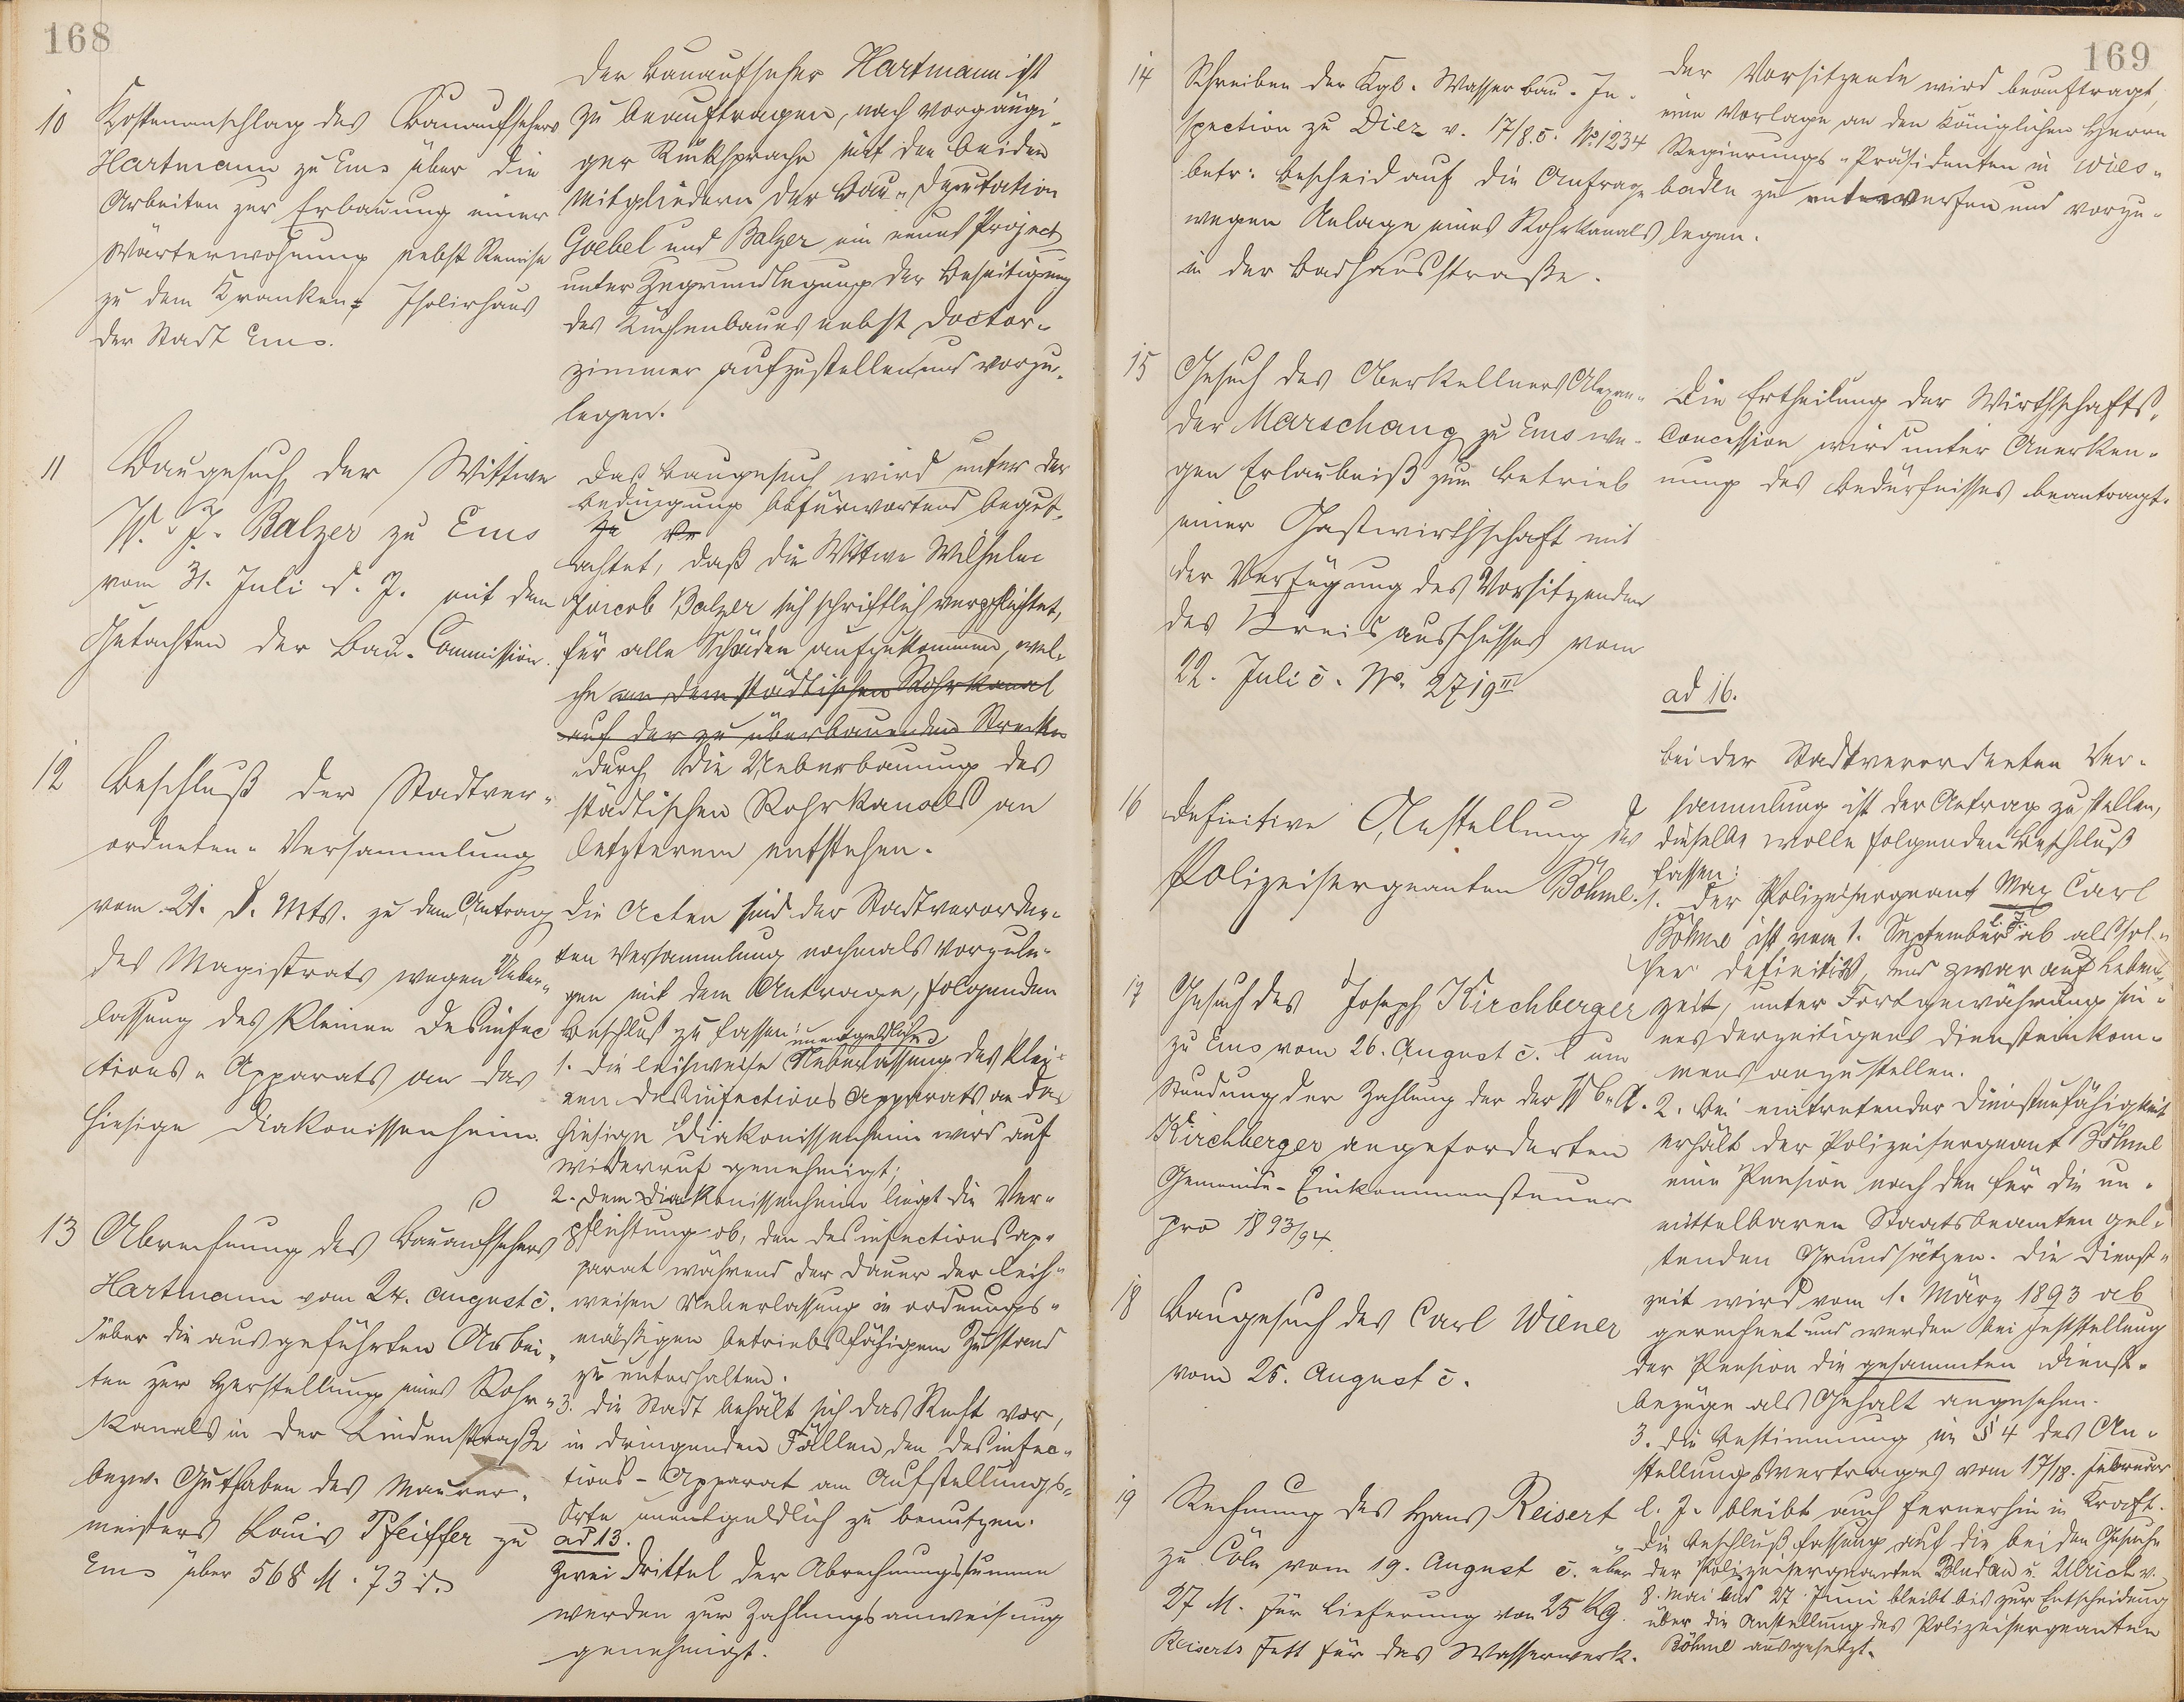 168
10
Kostenanschlag des Bauaufsehers
Hartmann zu Ems über die
Arbeiten zur Erbauung einer
Wärterwohnung nebst Remise
zu dem Kranken- Isolirhaus
der Stadt Ems.
Der Bauaufseher Hartmann ist
zu beauftragen, nach vorgängi-
ger Rücksprache mit den beiden
Mitgliedern der Bau-Deputation
Goebel und Balzer ein neues Project
unter Zugrundlegung der Beseitigung
des Küchenbaues nebst Doctor-
zimmer aufzustellen und vorzu-
legen.
11
Baugesuch der Wittwe
W. J. Balzer zu Ems
vom 31. Juli d. J. mit dem
Gutachten der Bau-Commission.
Das Baugesuch wird unter der
Bedingung befürwortend begut-
achtet, daß die Wittwe Wilhelm
Jacob Balzer sich schriftlich verpflichtet,
für alle Schäden aufzukommen, wel-
che an dem städtischen Rohrkanal
auf der zu überbauenden Strecke
durch die Ueberbauung des
städtischen Rohrkanals an
letzterem entstehen.
12
Beschluß der Stadtver-
ordneten-Versammlung
vom 21. d. Mts. zu dem Antrag
des Magistrats wegen Ueber-
lassung des kleinen Desinfec
tions-Apparats an das
hiesige Diakonissenheim.
Die Acten sind der Stadtverordne-
ten Versammlung nochmals vorzule-
gen mit dem Antrage, folgenden
Beschluß zu fassen:
unentgeldliche
1. Die leihweise Ueberlassung des klei-
nen Desinfections Apparats an das
hiesige Diakonissenheim wird auf
Widerruf genehmigt;
2. Dem Diakonissenheim liegt die Ver-
pflichtung ob, den Desinfectionsap-
parat während der Dauer der leih-
weisen Ueberlassung in ordnungs-
mäßigen betriebsfähigem Zustand
zu unterhalten.
3. Die Stadt behält sich das Recht vor,
in dringenden Fällen den Desinfec-
tions-Apparat am Aufstellungs-
Orte unentgeldlich zu benutzen.
13
Abrechnung des Bauaufsehers
Hartmann vom 24. August c.
über die ausgeführten Arbei-
ten zur Herstellung eines Rohr-
kanals in der Lindenstraße
bezw. Guthaben des Maurer-
meisters Louis Pfeiffer zu
Ems über 568 M. 73 d.
ad 13.
Zwei Drittel der Abrechnungssumme
werden zur Zahlungsanweisung
genehmigt.
169
14
Schreiben der Kgl. Wasserbau-In-
spection zu Diez v. 17/8. c. No 1234
betr: Bescheid auf die Anfrage
wegen Anlage eines Rohrkanals
in der Badhausstraße.
Der Vorsitzende wird beauftragt,
eine Vorlage an den Königlichen Herrn
Regierungs-Präsidenten in Wies-
baden zu entwerfen und vorzu-
legen.
15
Gesuch des Oberkellners Alexan-
der Marschang zu Ems we-
gen Erlaubniß zum Betrieb
einer Gastwirthschaft mit
der Verfügung des Vorsitzenden
des Kreisausschusses vom
22. Juli c. No. 2719 II
Die Ertheilung der Wirthschafts-
Concession wird unter Anerken-
nung des Bedürfnisses beantragt.
16
Definitive Anstellung des
Polizeisergeanten Böhme.
ad 16.
Bei der Stadtverordneten Ver-
sammlung ist der Antrag zu stellen,
dieselbe wolle folgenden Beschluß
fassen:
1. Der Polizeisergeant Max Carl
Böhme ist vom 1. September l. J. ab als sol-
cher definitiv, und zwar auf Lebens-
zeit, unter Fortgewährung sei-
nes derzeitigens Diensteinkom-
mens anzustellen.
2. Bei eintretender Dienstunfähigkeit
erhält der Polizeisergeant Böhme
eine Pension nach den für die un-
mittelbaren Staatsbeamten gel-
tenden Grundsätzen. Die Dienst-
zeit wird vom 1. März 1893 ab
gerechnet und werden bei Feststellung
der Pension die gesammten Dienst-
bezüge als Gehalt angesehen.
3. Die Bestimmung in § 4 des An-
stellungsvertrages vom 17/18. Februar
l. J. bleibt auch fernerhin in Kraft.
Die Beschlußfassung auf die beiden Gesuche
der Polizeisergeanten u. Ulrich v.
8. Mai und 27. Juni bleibt bis zur Entscheidung
über die Anstellung des Polizeisergeanten
Böhme ausgesetzt.
17
Gesuch des Joseph Kirchberger
zu Ems vom 26. August c. um
Stundung der Zahlung der der
Kirchberger angeforderten
Gemeinde-Einkommensteuer
pro 1893/94.
18
Baugesuch des Carl Wiener
vom 25. August c.
19
Rechnung des Hans Reisert
zu Cöln vom 19. August c. über
27 M. für Lieferung von 25 Kg.
Reiserts Fett für das Wasserwerk.